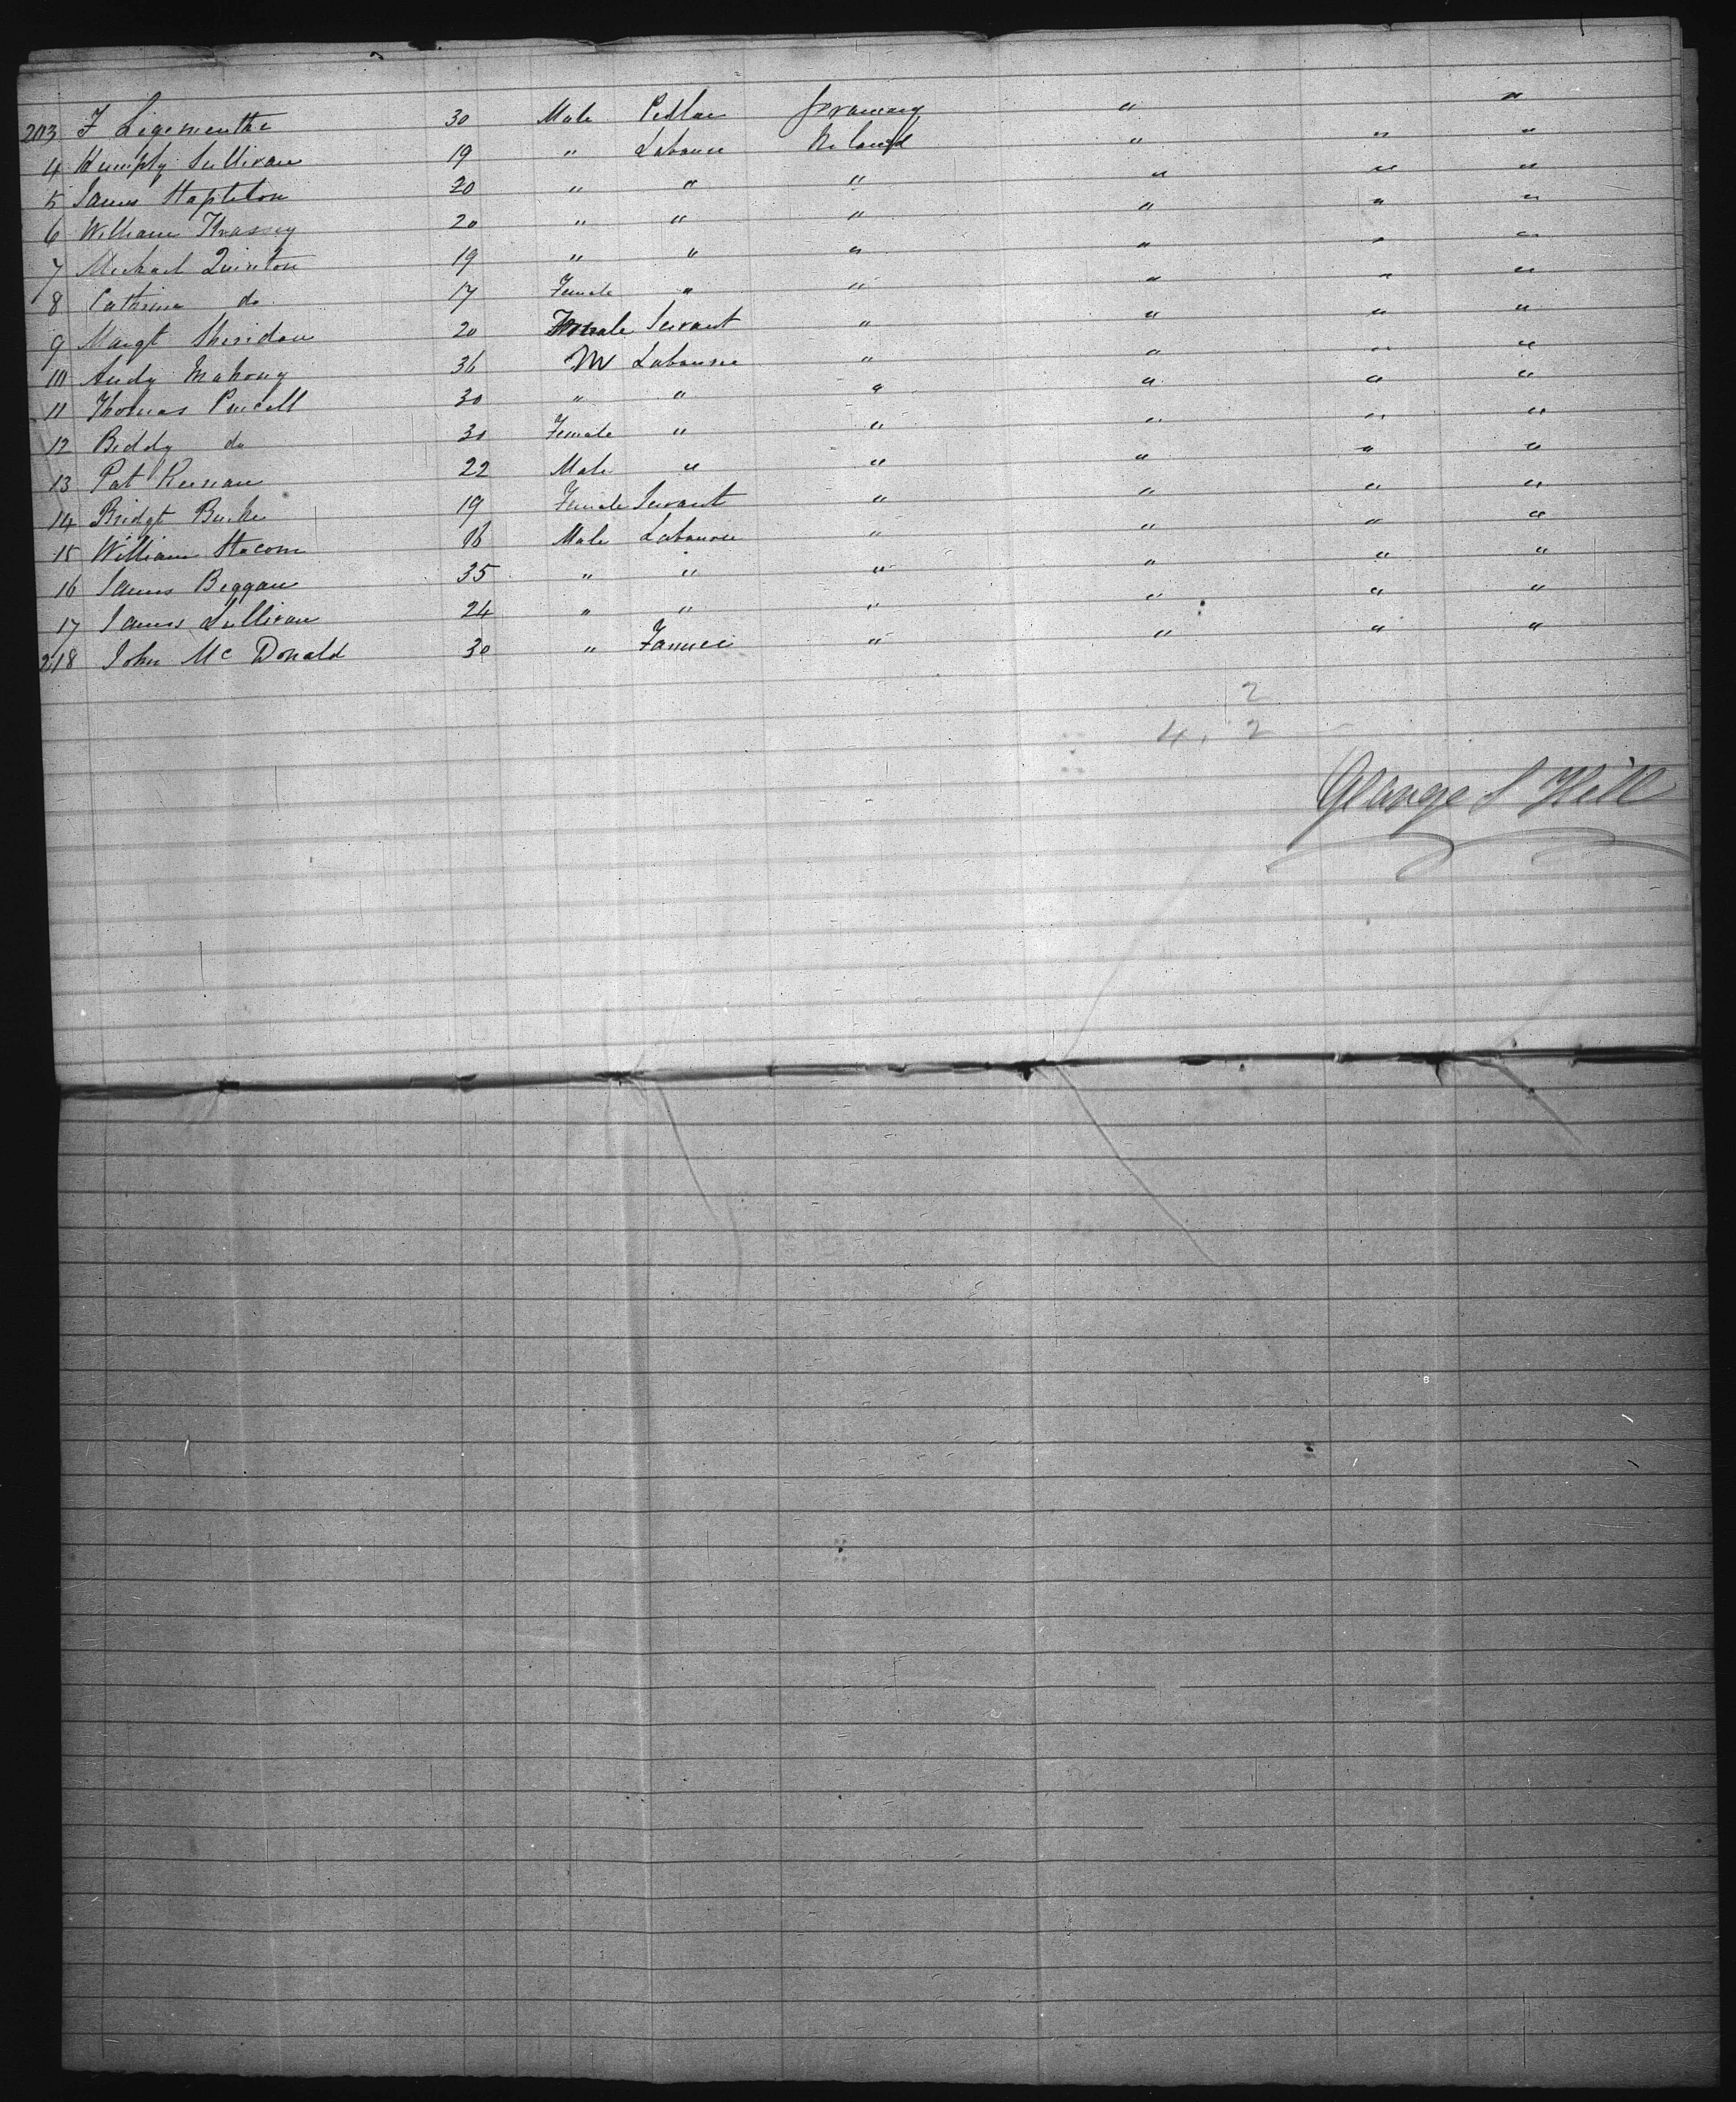 203 F Ligementhe 30 Male Pedlar Germany " "
4 Humphy Sullivan 19 " Labourer Ireland " " "
5 James Stapleton 20 " " " " " "
6 William Krassey 20 " " " " " "
7 Michael Quinton 19 " " " " " "
8 Cathrine do 17 Female " " " " "
9 Margt Sheridan 20 Female Servant " " " "
10 Andy Mahony 36 M Labourer " " " "
11 Thomas Purcell 30 " " " " " "
12 Biddy do 30 Female " " " " "
13 Pat Keenan 22 Male " " " " "
14 Bridgt Burke 19 Female Servant " " " "
15 William Stacom 16 Male Labourer " " " "
16 James Beggan 35 " " " " " "
17 James Sullivan 24 " " " " " "
218 John Mc Donald 30 " Farmer " " " "
2
4. 2
George S Hill